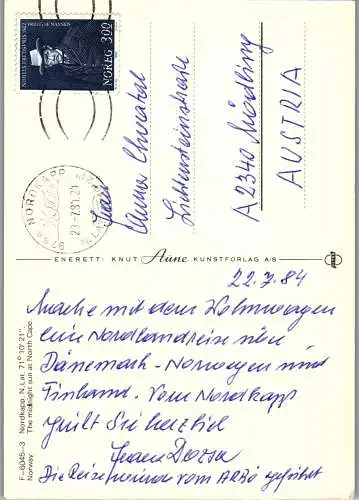 NOBELS FREDSPRIS 1922 FRIDTJOF NANSEN
NOREG 300
9764 NORDKAPP
23-7.84.21
Frau
Anna
A 2340 Mödling
AUSTRIA
ENERETT: KNUT Aune KUNSTFORLAG A/S
F-6045-3 Nordkapp. N.Lat. 71° 10' 21".
Norway The midnight sun at North Cape
22.7.84
Mache mit dem Wohnwagen
eine Nordlandreise über
Dänemark - Norwegen und
Finland. Vom Nordkapp
grüßt Sie herzlich
Die Reise wird vom ARBÖ geführt